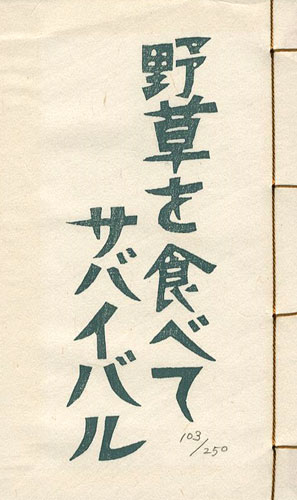 野草を食べて
サバイバル
103/250